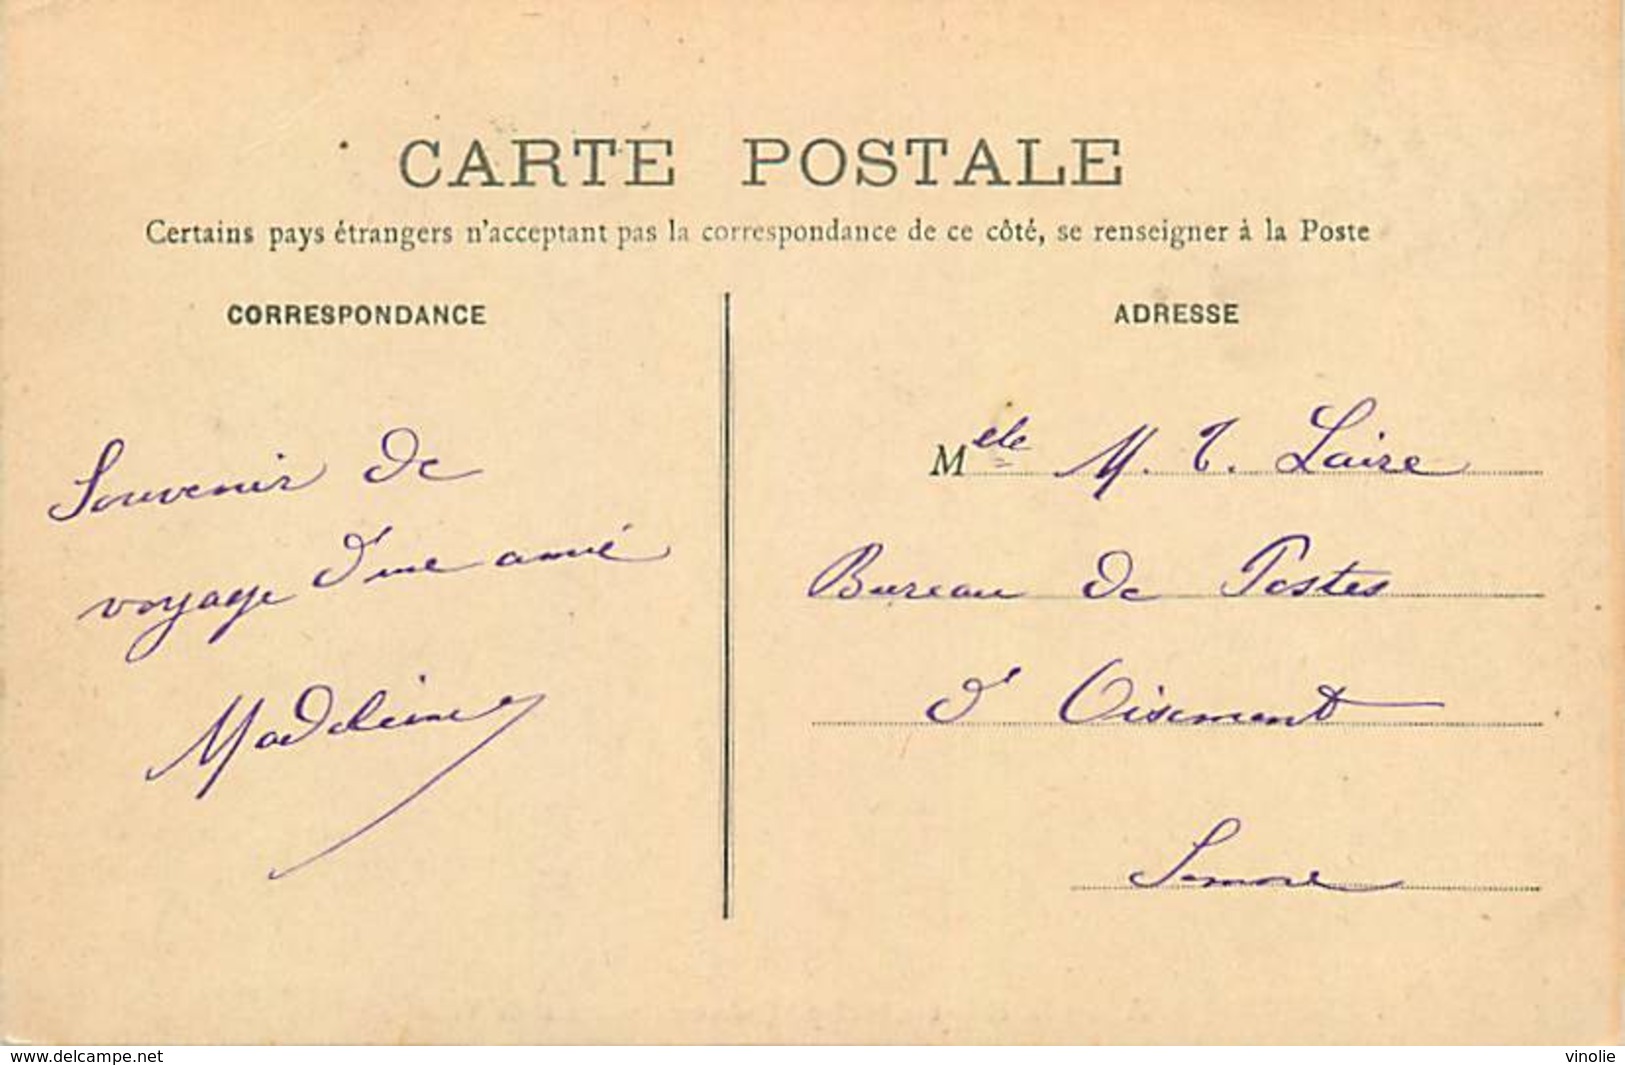 CARTE POSTALE
Certains pays étrangers n'acceptant pas la correspondance de ce côté, se renseigner à la Poste
CORRESPONDANCE
Souvenir de
voyage d'une amie
Madeleine
ADRESSE
Melle M. T. Laire
Bureau de Postes
d'Oisemont
Somme
www.delcampe.net
vinolie